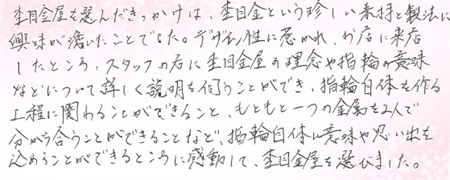 杢目金屋を選んだきっかけは、杢目金という珍しい素材と製法に
興味が湧いたことでした。デザイン性に惹かれ、お店に来店
したところ、スタッフの方に杢目金屋の理念や指輪の意味
などについて詳しく説明を伺うことができ、指輪自体を作る
工程に関わることができること、もともと一つの金属を2人で
分かち合うことができることなど、指輪自体に意味や思い出を
込めることができるところに感動して、杢目金屋を選びました。